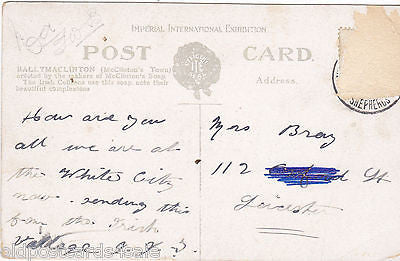 IMPERIAL INTERNATIONAL EXHIBITION
POST CARD.
BALLYMACLINTON (McClinton's Town)
erected by the makers of McClinton's Soap.
The Irish Colleens use this soap, note their
beautiful complexions
Address.
SHEPHERDS
How are you
all we are at
the White City
now. sending this
from the Irish
Village
Mrs Bray
112 St
Leicester
oldpostcards-ireland.com